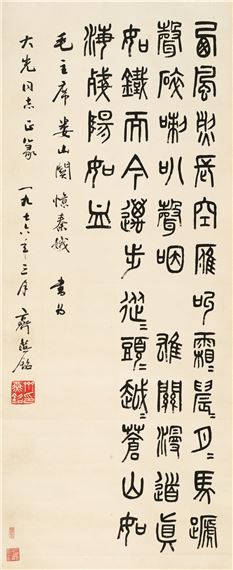 西風烈長空雁叫霜〻晨〻月〻馬蹄
聲碎喇叭聲咽 雄關漫道真
如鐵而今邁步從〻頭〻越〻蒼山如
海殘陽如血
毛主席婁山關憶秦娥 書為
大先同志正篆 一九七六年三月 齊燕銘